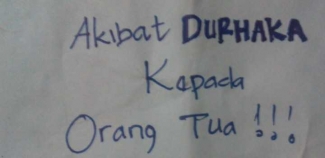 Akibat DURHAKA
Kapada
Orang Tua !!!